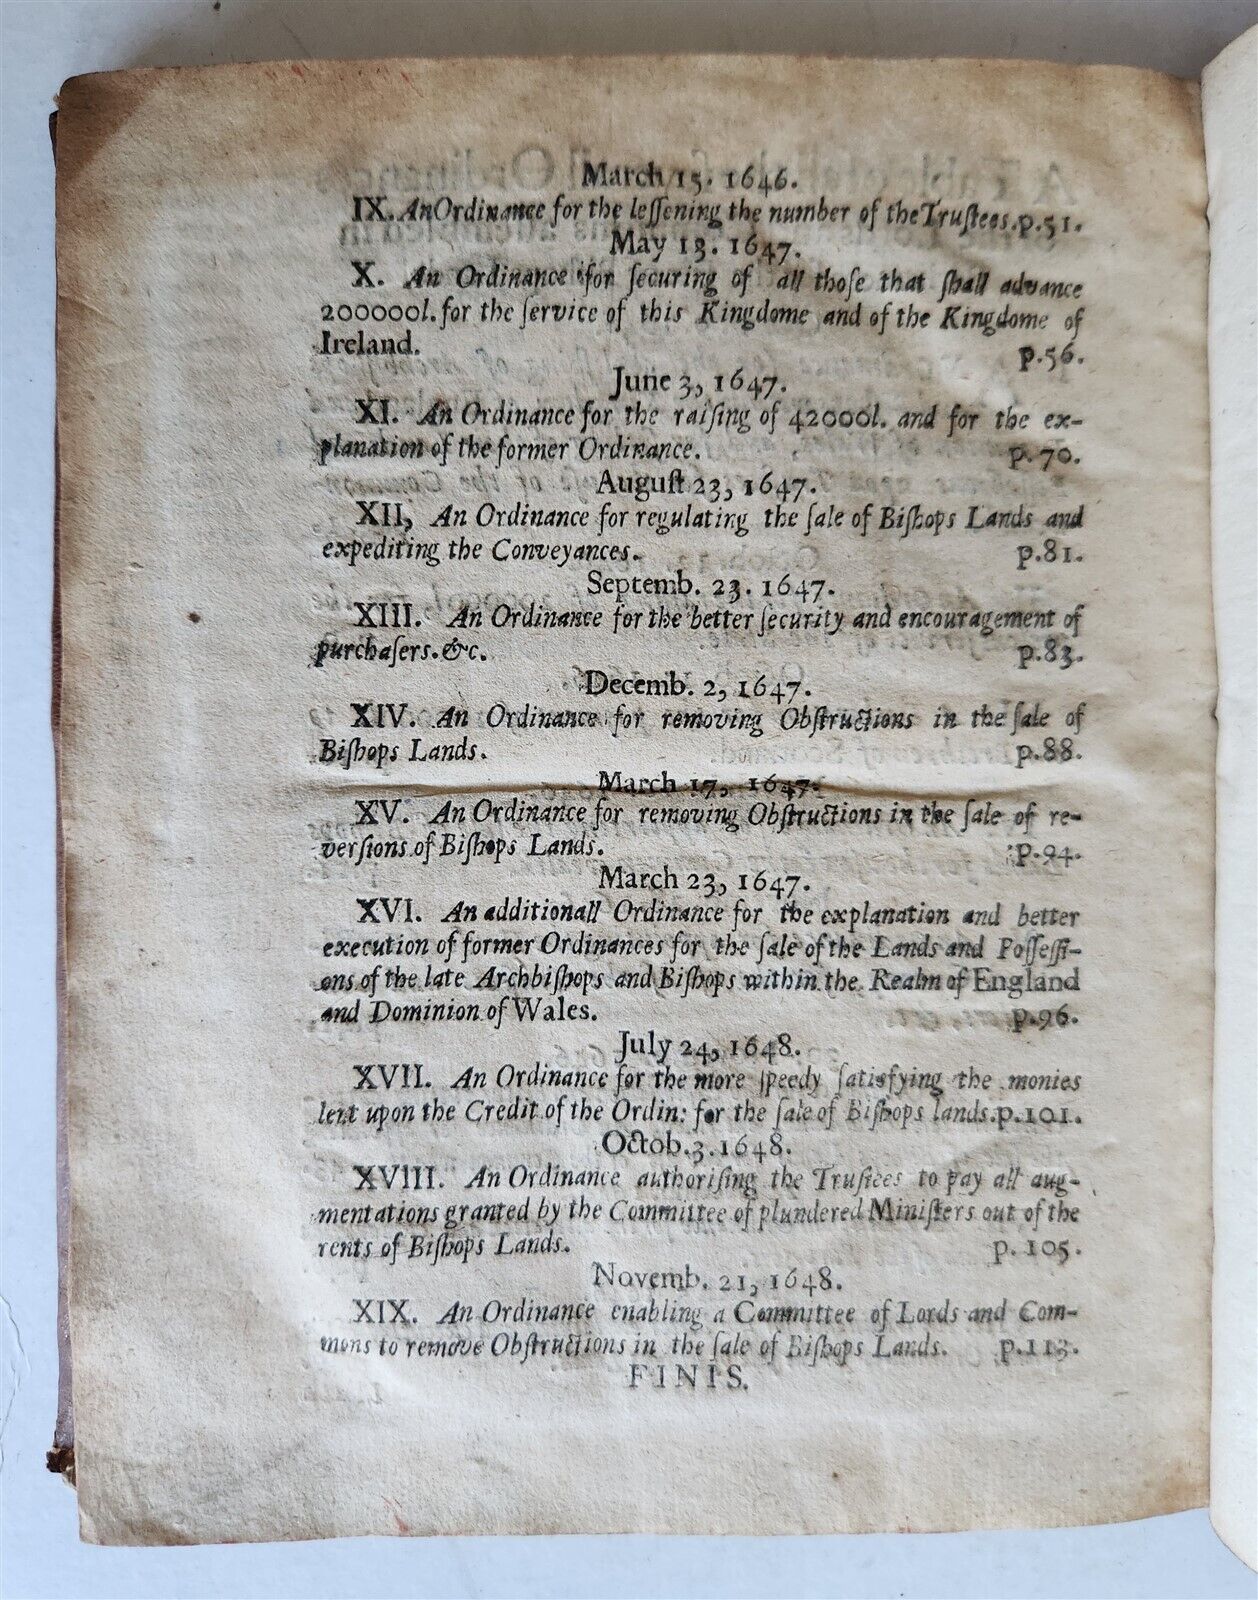 March 15. 1646.
IX. An Ordinance for the leſſening the number of the Truſtees. p.51.
May 13. 1647.
X. An Ordinance for ſecuring of all thoſe that ſhall advance
200000l. for the ſervice of this Kingdome and of the Kingdome of
Ireland. p.56.
June 3, 1647.
XI. An Ordinance for the raiſing of 42000l. and for the ex-
planation of the former Ordinance. p. 70.
Auguſt 23, 1647.
XII, An Ordinance for regulating the ſale of Biſhops Lands and
expediting the Conveyances. p.81.
Septemb. 23. 1647.
XIII. An Ordinance for the better ſecurity and encouragement of
purchaſers. &c. p.83.
Decemb. 2, 1647.
XIV. An Ordinance for removing Obſtructions in the ſale of
Biſhops Lands. p.88.
March 17, 1647.
XV. An Ordinance for removing Obſtructions in the ſale of re-
verſions of Biſhops Lands. p.94.
March 23, 1647.
XVI. An additionall Ordinance for the explanation and better
execution of former Ordinances for the ſale of the Lands and Poſſeſſi-
ons of the late Archbiſhops and Biſhops within the Realm of England
and Dominion of Wales. p.96.
July 24, 1648.
XVII. An Ordinance for the more ſpeedy ſatisfying the monies
lent upon the Credit of the Ordin: for the ſale of Biſhops lands. p.101.
Octob. 3. 1648.
XVIII. An Ordinance authoriſing the Truſtees to pay all aug-
mentations granted by the Committee of plundered Miniſters out of the
rents of Biſhops Lands. p. 105.
Novemb. 21, 1648.
XIX. An Ordinance enabling a Committee of Lords and Com-
mons to remove Obſtructions in the ſale of Biſhops Lands. p.113.
FINIS.